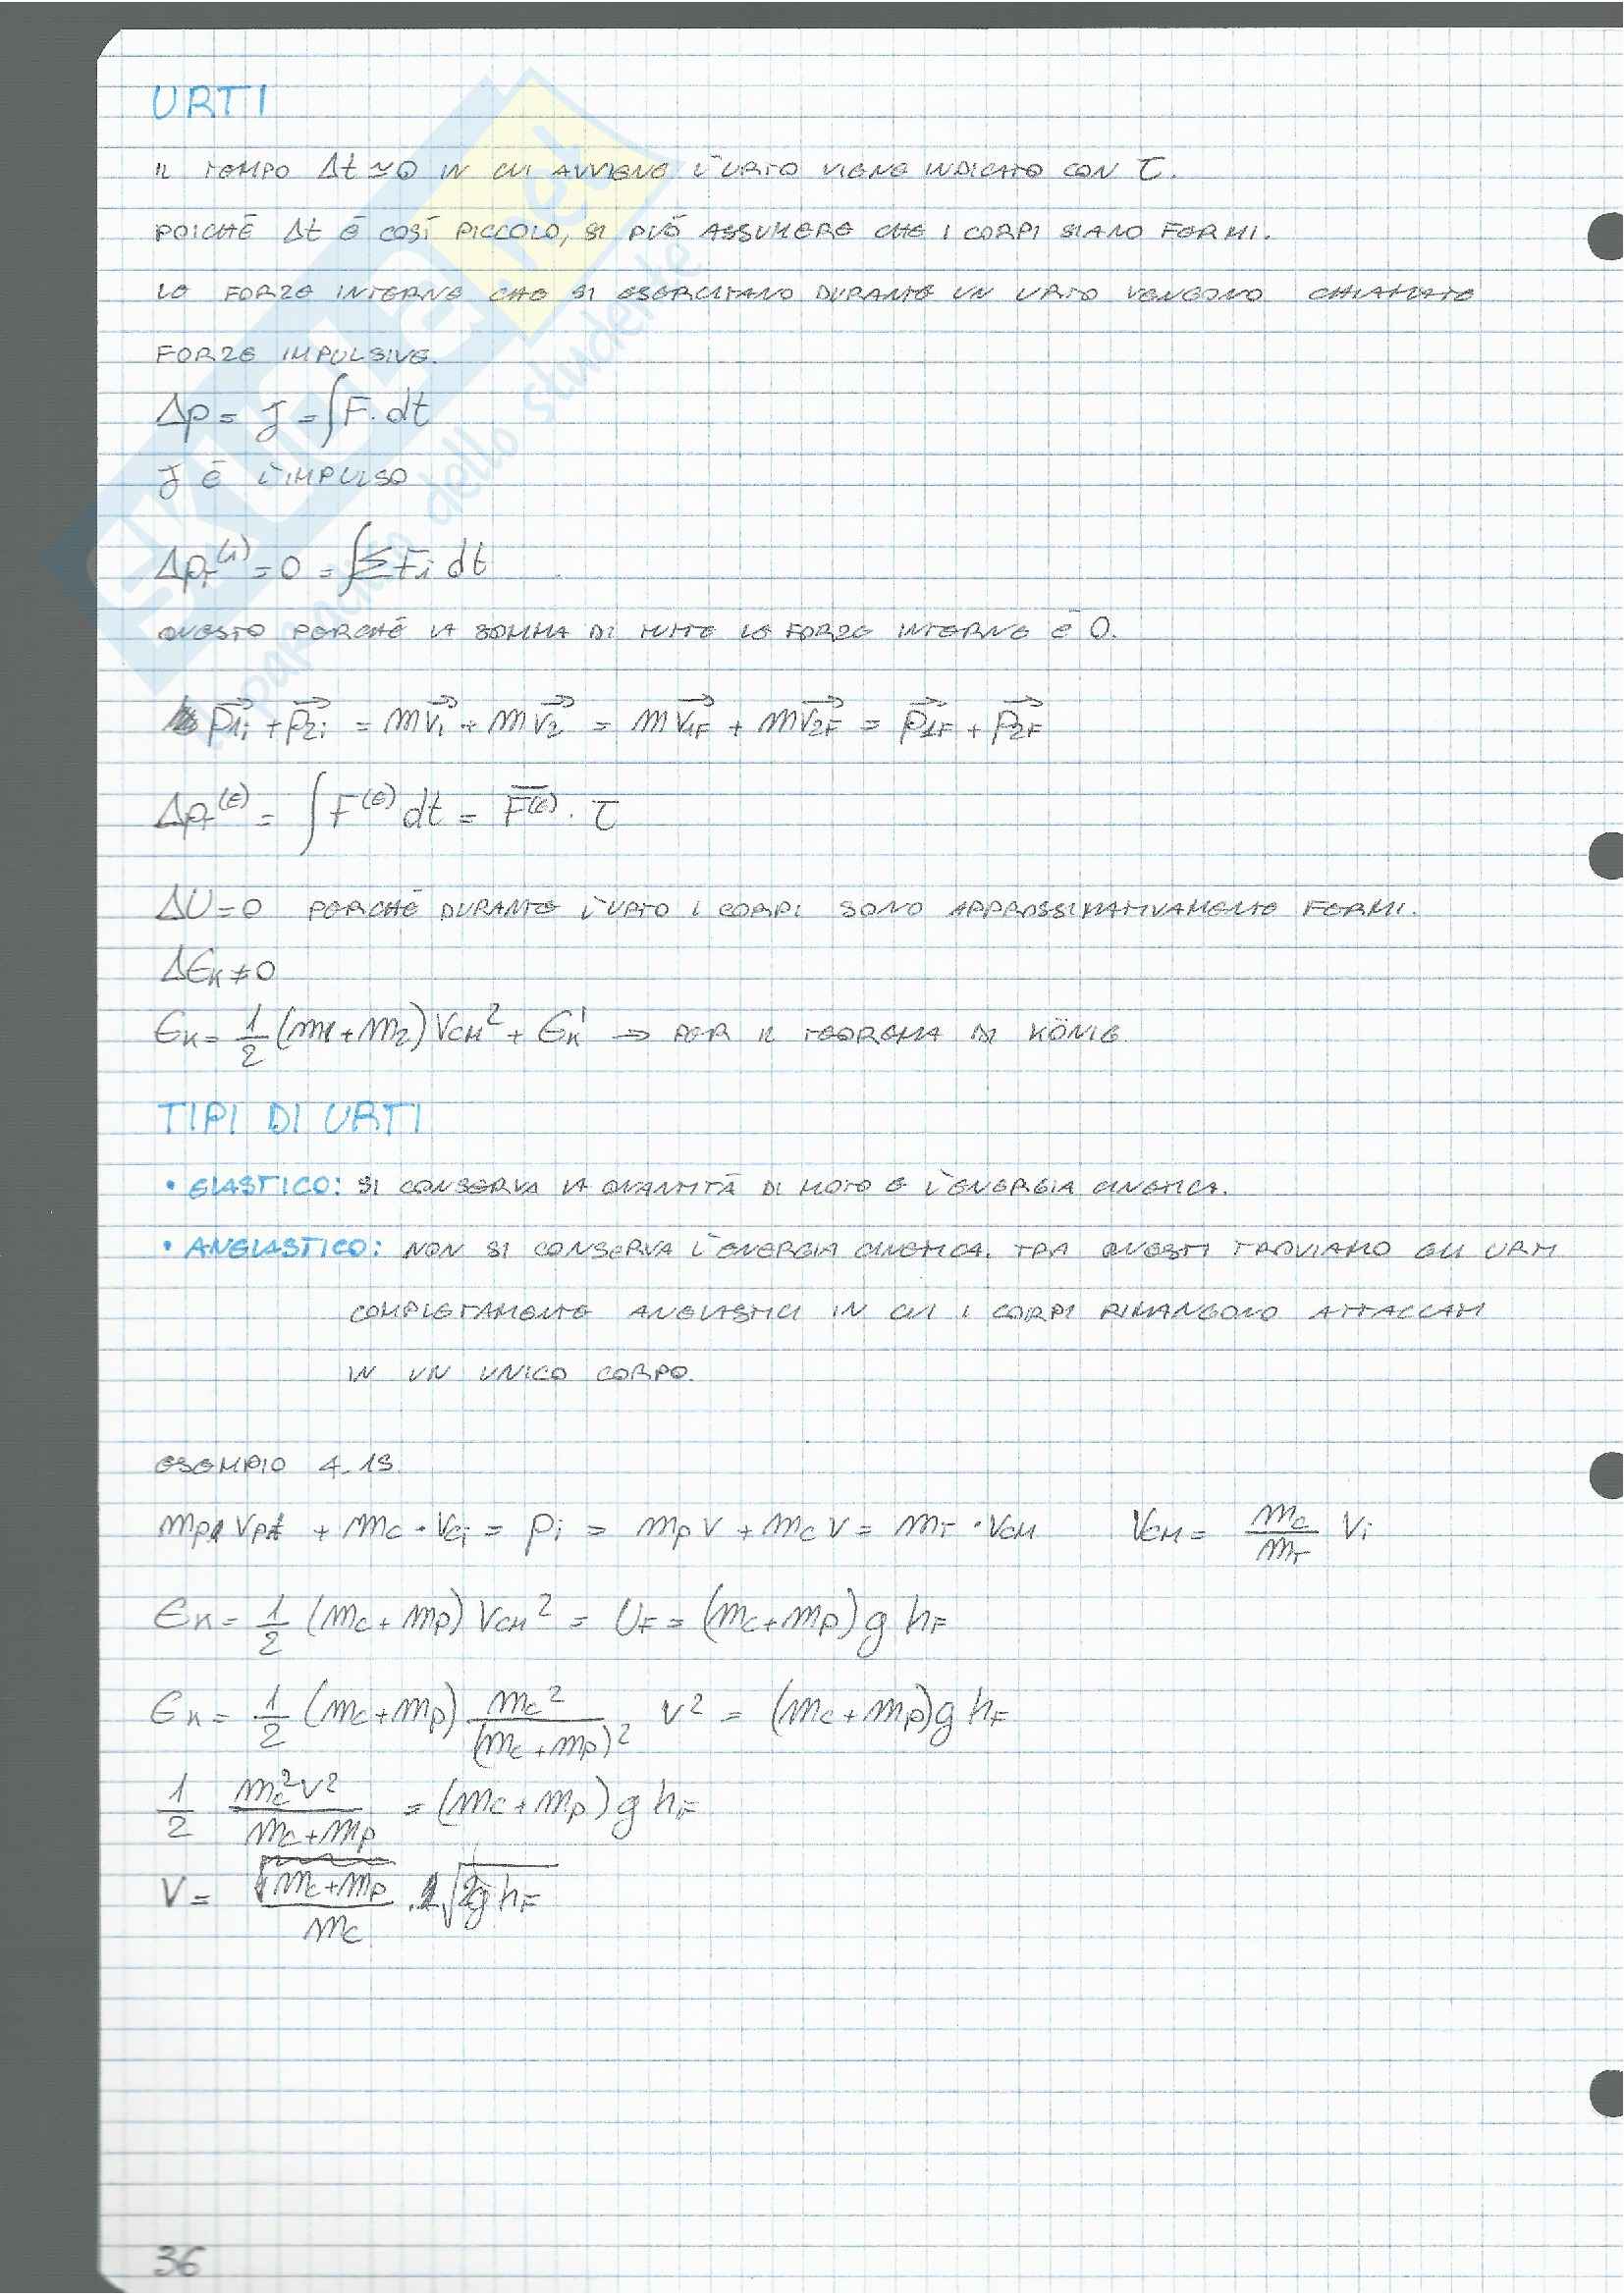 URTI
IL TEMPO Δt ≃ 0 IN CUI AVVIENE L'URTO VIENE INDICATO CON τ.
POICHÉ Δt È COSÍ PICCOLO, SI PUÒ ASSUMERE CHE I CORPI SIANO FERMI.
LE FORZE INTERNE CHE SI ESERCITANO DURANTE UN URTO VENGONO CHIAMATE
FORZE IMPULSIVE.
Δp = J = ∫F·dt
J È L'IMPULSO
Δp_T^(i) = 0 = ∫ΣF_i dt
QUESTO PERCHÉ LA SOMMA DI TUTTE LE FORZE INTERNE È 0.
p⃗_1i + p⃗_2i = m v⃗_1 + m v⃗_2 = m v⃗_1F + m v⃗_2F = p⃗_1F + p⃗_2F
Δp_T^(E) = ∫F^(E) dt = F̅^(E) · τ
ΔU = 0 PERCHÉ DURANTE L'URTO I CORPI SONO APPROSSIMATIVAMENTE FERMI.
ΔE_K ≠ 0
E_K = 1/2 (m_1 + m_2) V_CM² + E_K' → PER IL TEOREMA DI KÖNIG.
TIPI DI URTI
• ELASTICO: SI CONSERVA LA QUANTITÀ DI MOTO E L'ENERGIA CINETICA.
• ANELASTICO: NON SI CONSERVA L'ENERGIA CINETICA. TRA QUESTI TROVIAMO GLI URTI
COMPLETAMENTE ANELASTICI IN CUI I CORPI RIMANGONO ATTACCATI
IN UN UNICO CORPO.
ESEMPIO 4.19.
m_P V_P + m_C · V_Ci = p_i = m_P V + m_C V = m_T · V_CM V_CM = m_C/m_T V_i
E_K = 1/2 (m_C + m_P) V_CM² = U_F = (m_C + m_P) g h_F
E_K = 1/2 (m_C + m_P) m_C²/(m_C + m_P)² V² = (m_C + m_P) g h_F
1/2 m_C² V²/(m_C + m_P) = (m_C + m_P) g h_F
V = (m_C + m_P)/m_C · √(2 g h_F)
36
SKUOLA.net
paradiso dello studente